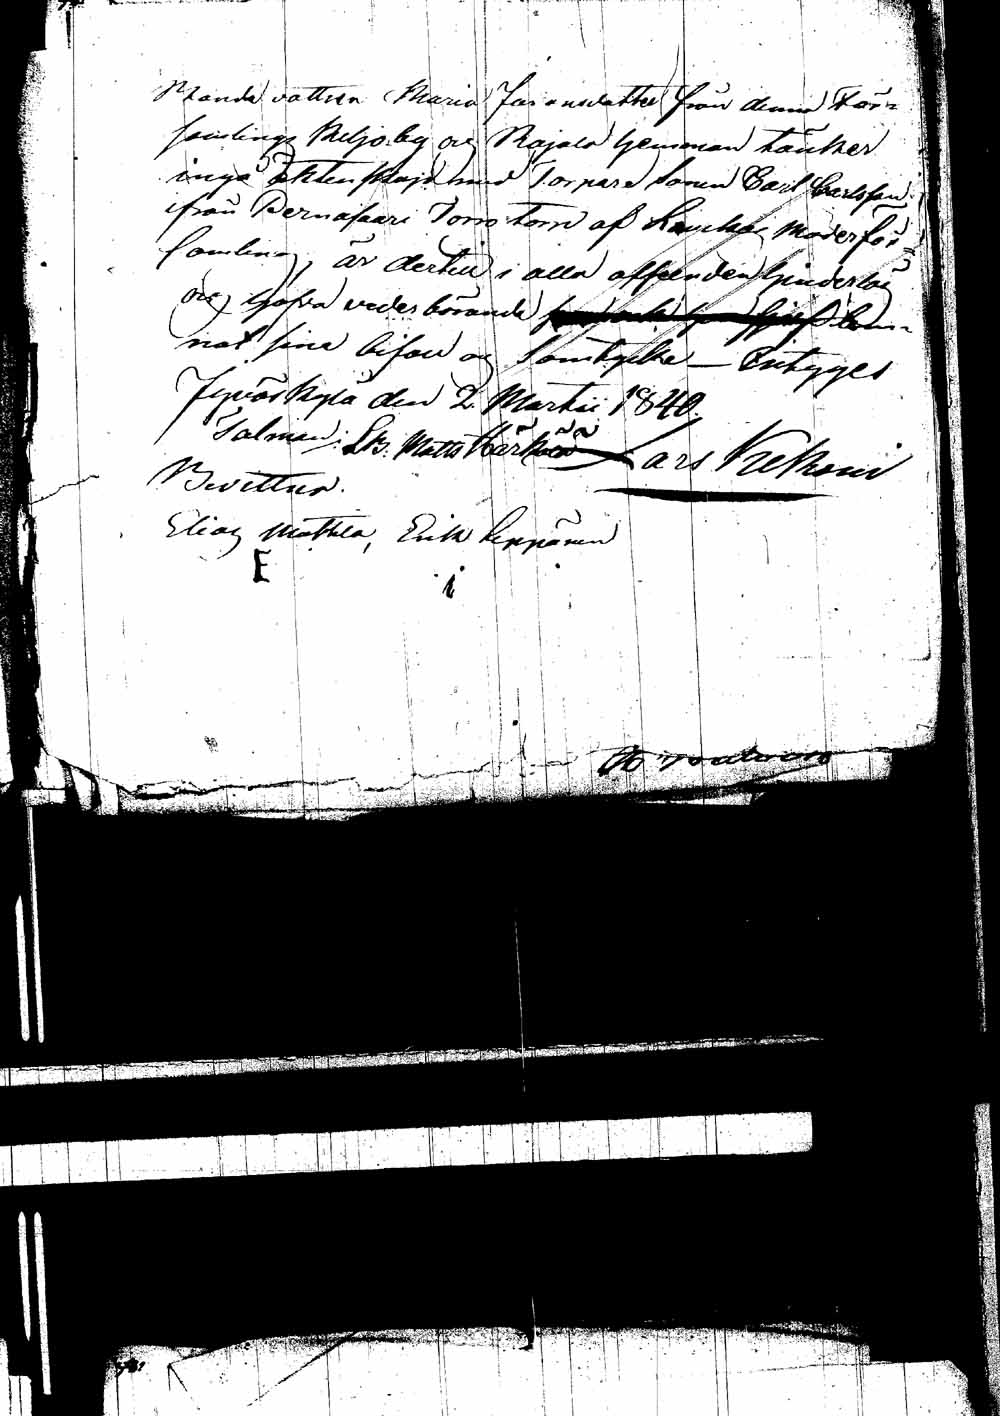 Bondedottren Maria Jaransdotter från denna För=
samlings Keljo by og Rajala hemman tänker
ingå Äktenskap med Torpare Sonen Carl Carlsson
ifrån Pernasaari Torp af Laukas Moderför=
samling, är dertill i alla afseenden hinderlös
og hafva vederbörande lem=
nat sine bifall og Samtycke — Intyges
Jyväskylä den 2 Martii 1840.
Talman: Matts Härkö Lars Kekoni
B. vittna.
Elias Mattila, Erik Leppänen
E i